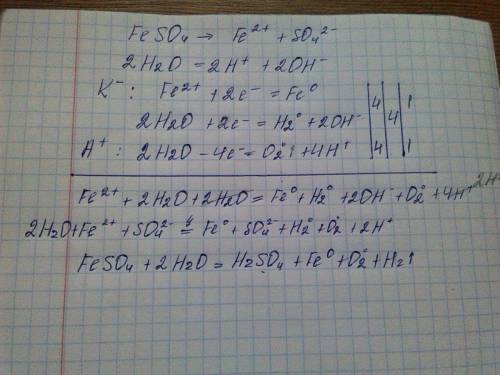 FeSO₄ → Fe²⁺ + SO₄²⁻
2H₂O = 2H⁺ + 2OH⁻
K⁻: Fe²⁺ + 2e⁻ = Fe⁰ | 4 | 4 | 1
2H₂O + 2e⁻ = H₂⁰ + 2OH⁻
A⁺: 2H₂O - 4e⁻ = O₂⁰↑ + 4H⁺ | 4 | | 1
Fe²⁺ + 2H₂O + 2H₂O = Fe⁰ + H₂⁰ + 2OH⁻ + O₂⁰ + 4H⁺
2H₂O + Fe²⁺ + SO₄²⁻ = Fe⁰ + SO₄²⁻ + H₂⁰ + O₂⁰ + 2H⁺
FeSO₄ + 2H₂O = H₂SO₄ + Fe⁰ + O₂⁰ + H₂↑